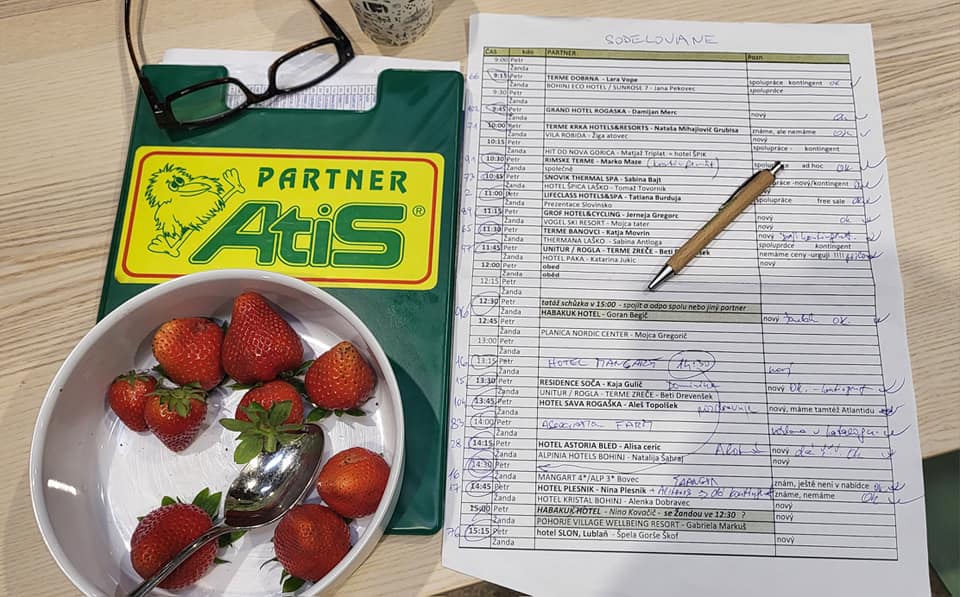 SODELOVANE
ČAS kdo PARTNER Pozn.
9:00 Petr
Žanda
66 9:15 Petr TERME DOBRNA - Lara Vope spolupráce kontingent ok
Žanda BOHINJ ECO HOTEL / SUNROSE 7 - Jana Pekovec spolupráce
9:30 Petr
Žanda
9:45 Petr GRAND HOTEL ROGASKA - Damijan Merc nový ok
Žanda
71 10:00 Petr TERME KRKA HOTELS&RESORTS - Nataša Mihajlovič Grubisa známe, ale nemáme OK
Žanda VILA ROBIDA - Žiga atovec nový
10:15 Petr
Žanda HIT DD NOVA GORICA - Matjaž Triplat = hotel ŠPIK spolupráce - kontingent
91 10:30 Petr RIMSKE TERME - Marko Maze ad hoc OK
Žanda společné
10:45 Petr SNOVIK THERMAL SPA - Sabina Bajt spolupráce -nový/kontingent
Žanda HOTEL ŠPICA LAŠKO - Tomaž Tovornik nový
2 11:00 Petr LIFECLASS HOTELS&SPA - Tatiana Burduja spolupráce free sale OK
Žanda Prezentace Slovinsko
89 11:15 Petr GROF HOTEL&CYCLING - Jerneja Gregorc nový ok
Žanda VOGEL SKI RESORT - Mojca tater nový
65 11:30 Petr TERME BANOVCI - Katja Movrin nový
Žanda THERMANA LAŠKO - Sabina Antloga spolupráce kontingent
77 11:45 Petr UNITUR / ROGLA - TERME ZREČE - Beti Drevenšek nemáme ceny -urguji !!!!
Žanda HOTEL PAKA - Katarina Jukic nový
12:00 Petr obed
Žanda oběd
12:15 Petr
Žanda
12:30 Petr tatáž schůzka v 15:00 - spojit a odpo spolu nebo jiný partner
Žanda HABAKUK HOTEL - Goran Begič nový OK.
12:45 Petr
Žanda PLANICA NORDIC CENTER - Mojca Gregorič nový
13:00 Petr
Žanda
16 13:15 Petr HOTEL MANGART 14:30 nový
Žanda
15 13:30 Petr RESIDENCE SOČA - Kaja Gulič Dominika nový OK
Žanda UNITUR / ROGLA - TERME ZREČE - Beti Drevenšek
13:45 Petr HOTEL SAVA ROGAŠKA - Aleš Topolšek nový, máme tamtéž Atlantidu
Žanda
83 14:00 Petr ASSOCIATION FARM
Žanda
28 14:15 Petr HOTEL ASTORIA BLED - Alisa ceric nový
Žanda ALPINIA HOTELS BOHINJ - Natalija Šabraj nový
14:30 Petr
16 Žanda MANGART 4*/ALP 3* Bovec znám, ještě není v nabídce ok
14:45 Petr HOTEL PLESNIK - Nina Plesnik známe, nemáme OK
Žanda HOTEL KRISTAL BOHINJ - Alenka Dobravec nový
15:00 Petr HABAKUK HOTEL - Nino Kovačič - se Žandou ve 12:30 ? nový
Žanda POHORJE VILLAGE WELLBEING RESORT - Gabriela Markuš
76 15:15 Petr hotel SLON, Lublaň - Špela Gorše Škof nový
Žanda
PARTNER
AtiS®